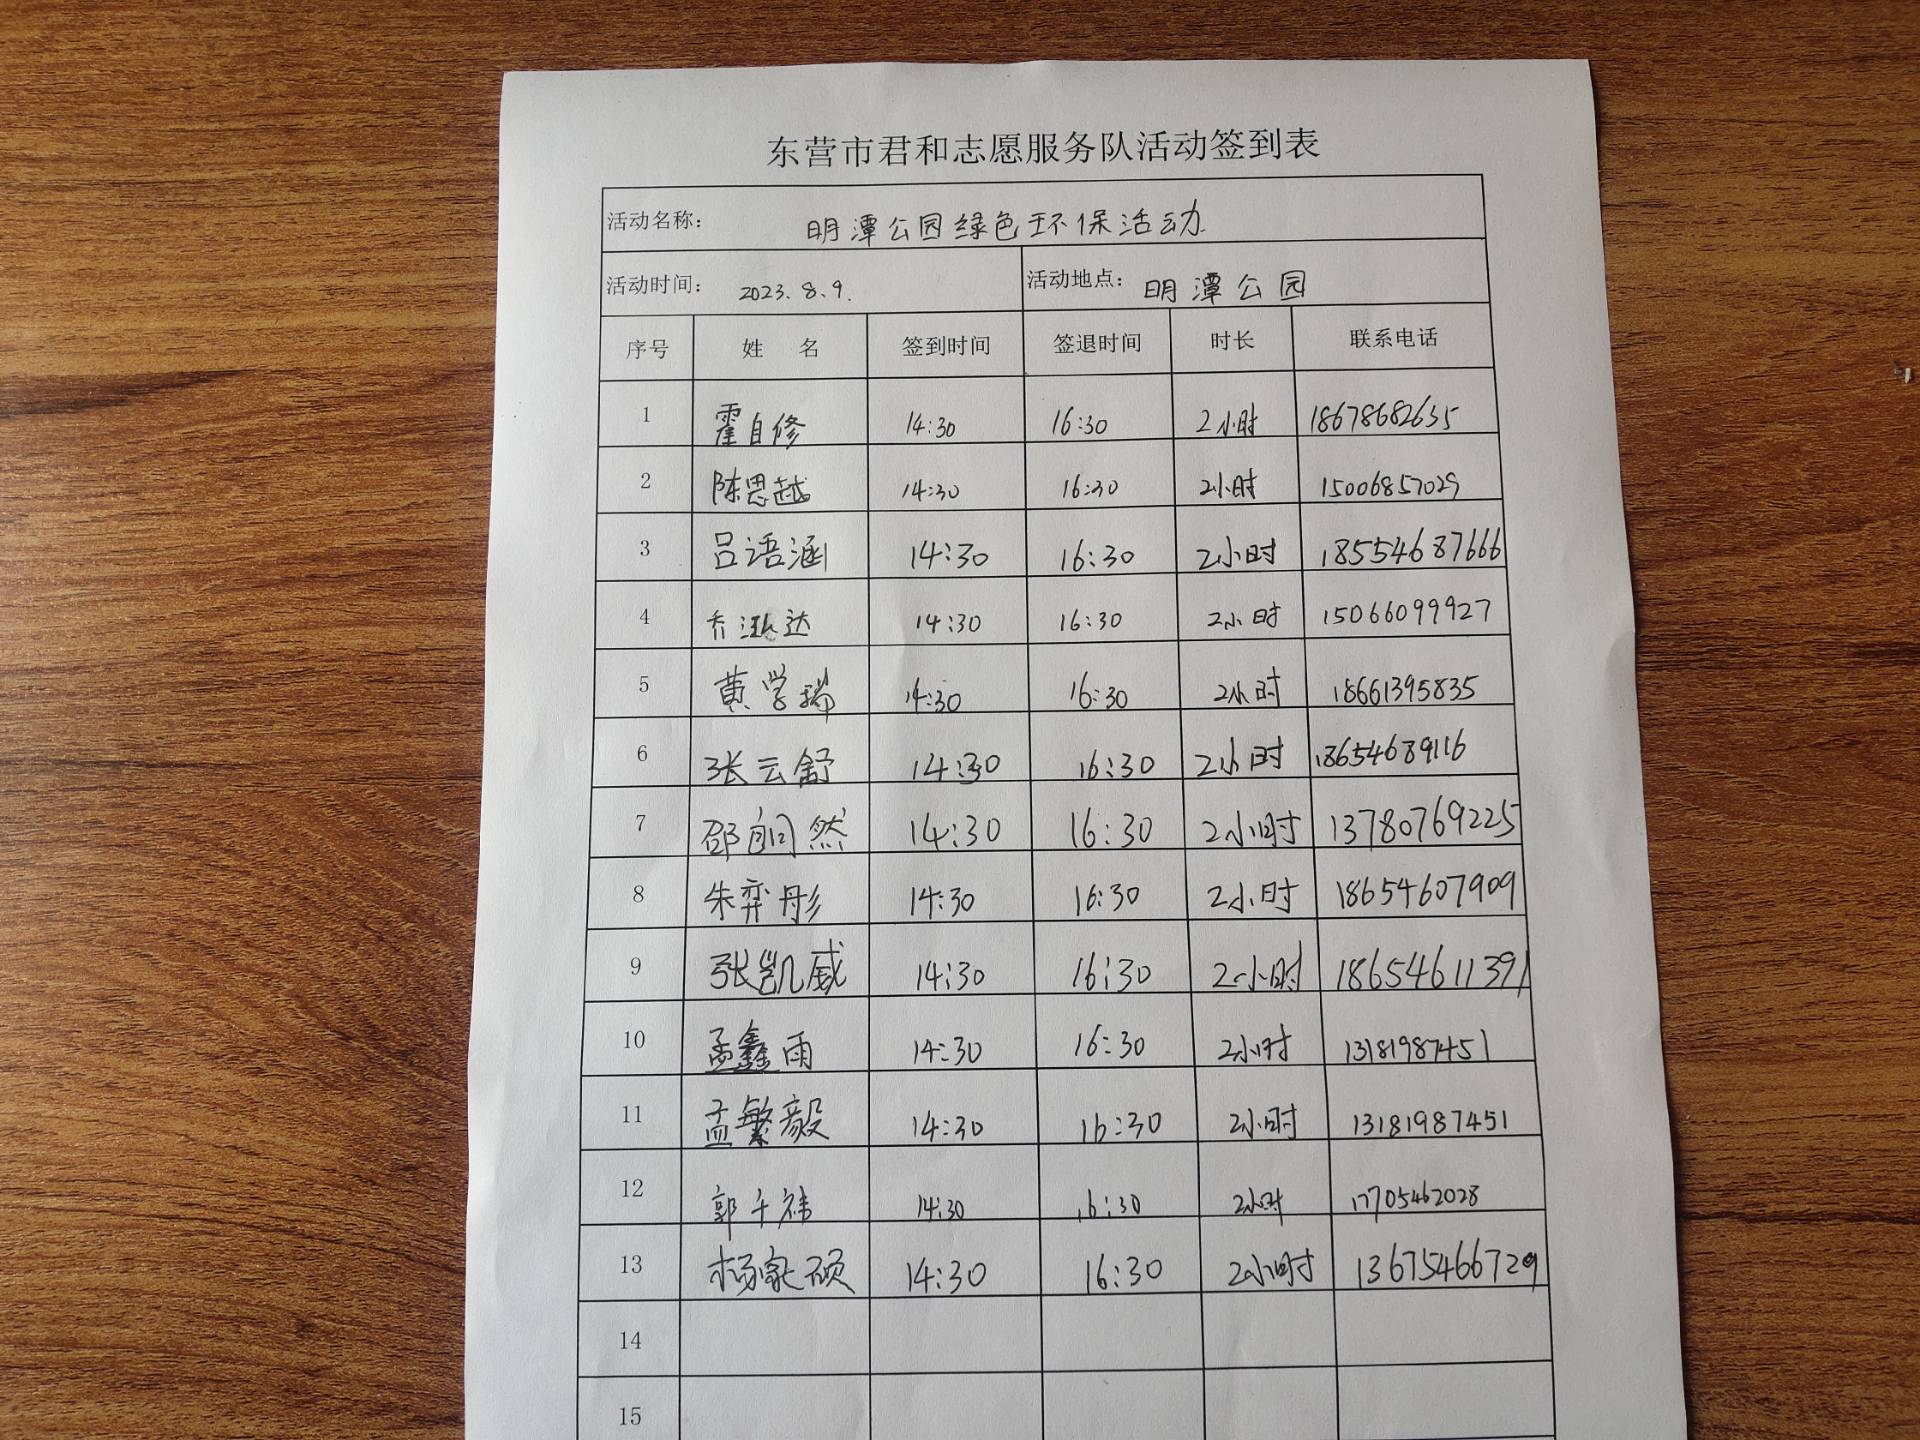 东营市君和志愿服务队活动签到表
活动名称： 明潭公园绿色环保活动
活动时间： 2023.8.9. 活动地点： 明潭公园
序号 姓 名 签到时间 签退时间 时长 联系电话
1 霍自修 14:30 16:30 2小时 18678682635
2 陈思越 14:30 16:30 2小时 15006857029
3 吕语涵 14:30 16:30 2小时 18554687666
4 乔泓达 14:30 16:30 2小时 15066099927
5 黄学瑞 14:30 16:30 2小时 18661395835
6 张云舒 14:30 16:30 2小时 18654689116
7 14:30 16:30 2小时 13780769225
8 朱弈彤 14:30 16:30 2小时 18654607909
9 张凯威 14:30 16:30 2小时 18654611391
10 孟鑫雨 14:30 16:30 2小时 13181987451
11 孟繁毅 14:30 16:30 2小时 13181987451
12 14:30 16:30 2小时 17705462028
13 杨家硕 14:30 16:30 2小时 13675466729
14
15